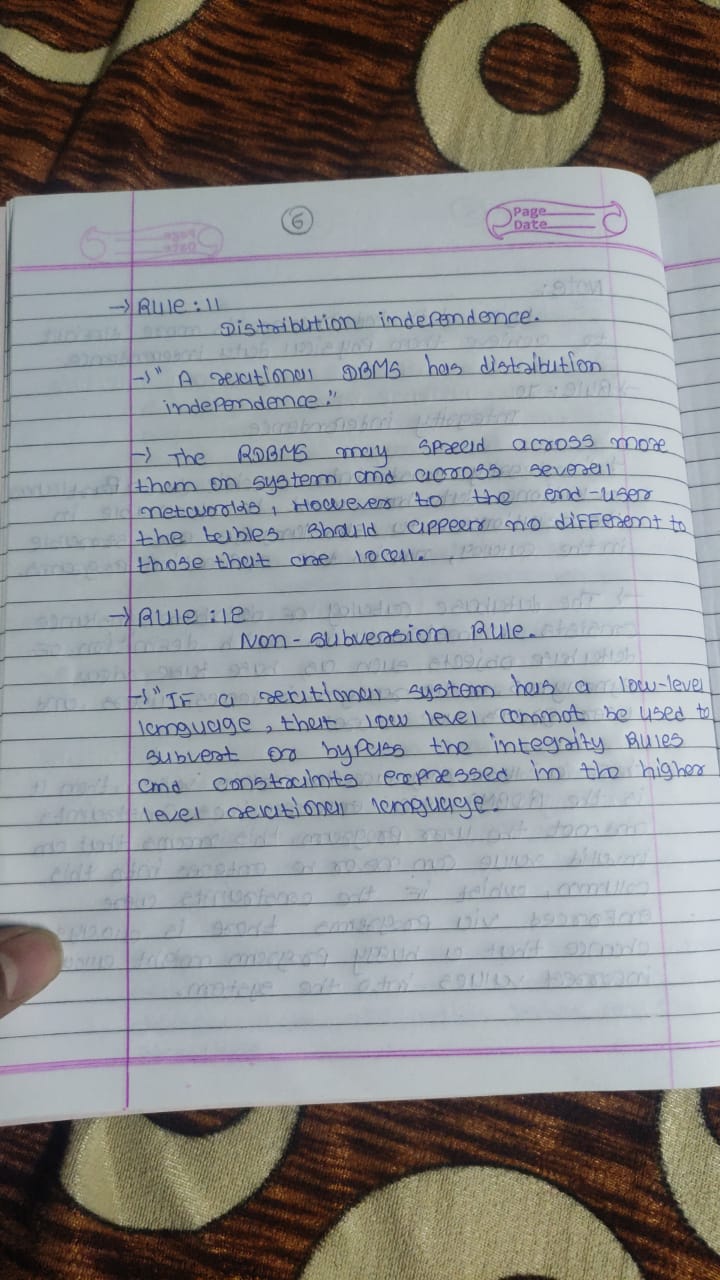 6
Page
Date
→ Rule : 11
Distribution independence.
→ " A relational DBMS has distribution
independence."
→ The RDBMS may spread across more
than on system and across several
networks, However to the end-user
the tables should appear no different to
those that are local.
→ Rule : 12
Non-subversion Rule.
→ "IF a relational system has a low-level
language, that low level cannot be used to
subvert or bypass the integrity Rules
and constraints expressed in the higher
level relational language.